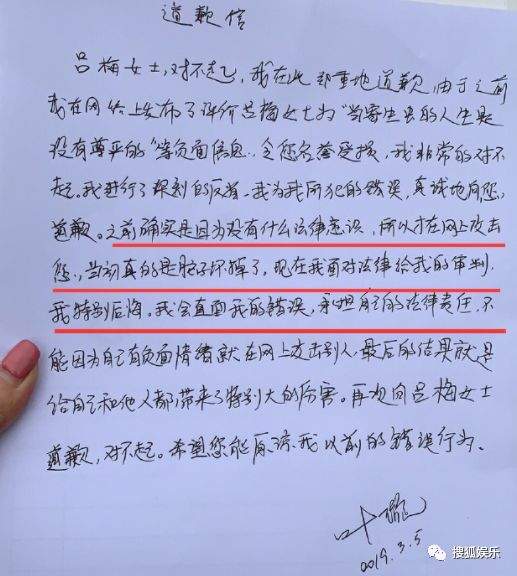 道歉信
吕梅女士,对不起,我在此郑重地道歉 由于之前
我在网络上发布了评价吕梅女士为“当寄生虫的人生是
没有尊严的”等负面信息,令您名誉受损,我非常的对不
起。我进行了深刻的反省。我为我所犯的错误,真诚地向您
道歉。之前确实是因为没有什么法律意识,所以才在网上攻击
您,当初真的是脑子坏掉了,现在我面对法律给我的审判,
我特别后悔。我会直面我的错误,承担自己的法律责任,不
能因为自己有负面情绪就在网上攻击别人,最后的结果就是
给自己和他人都带来了特别大的伤害。再次向吕梅女士
道歉,对不起。希望您能原谅我以前的错误行为。
2019.3.5
搜狐娱乐